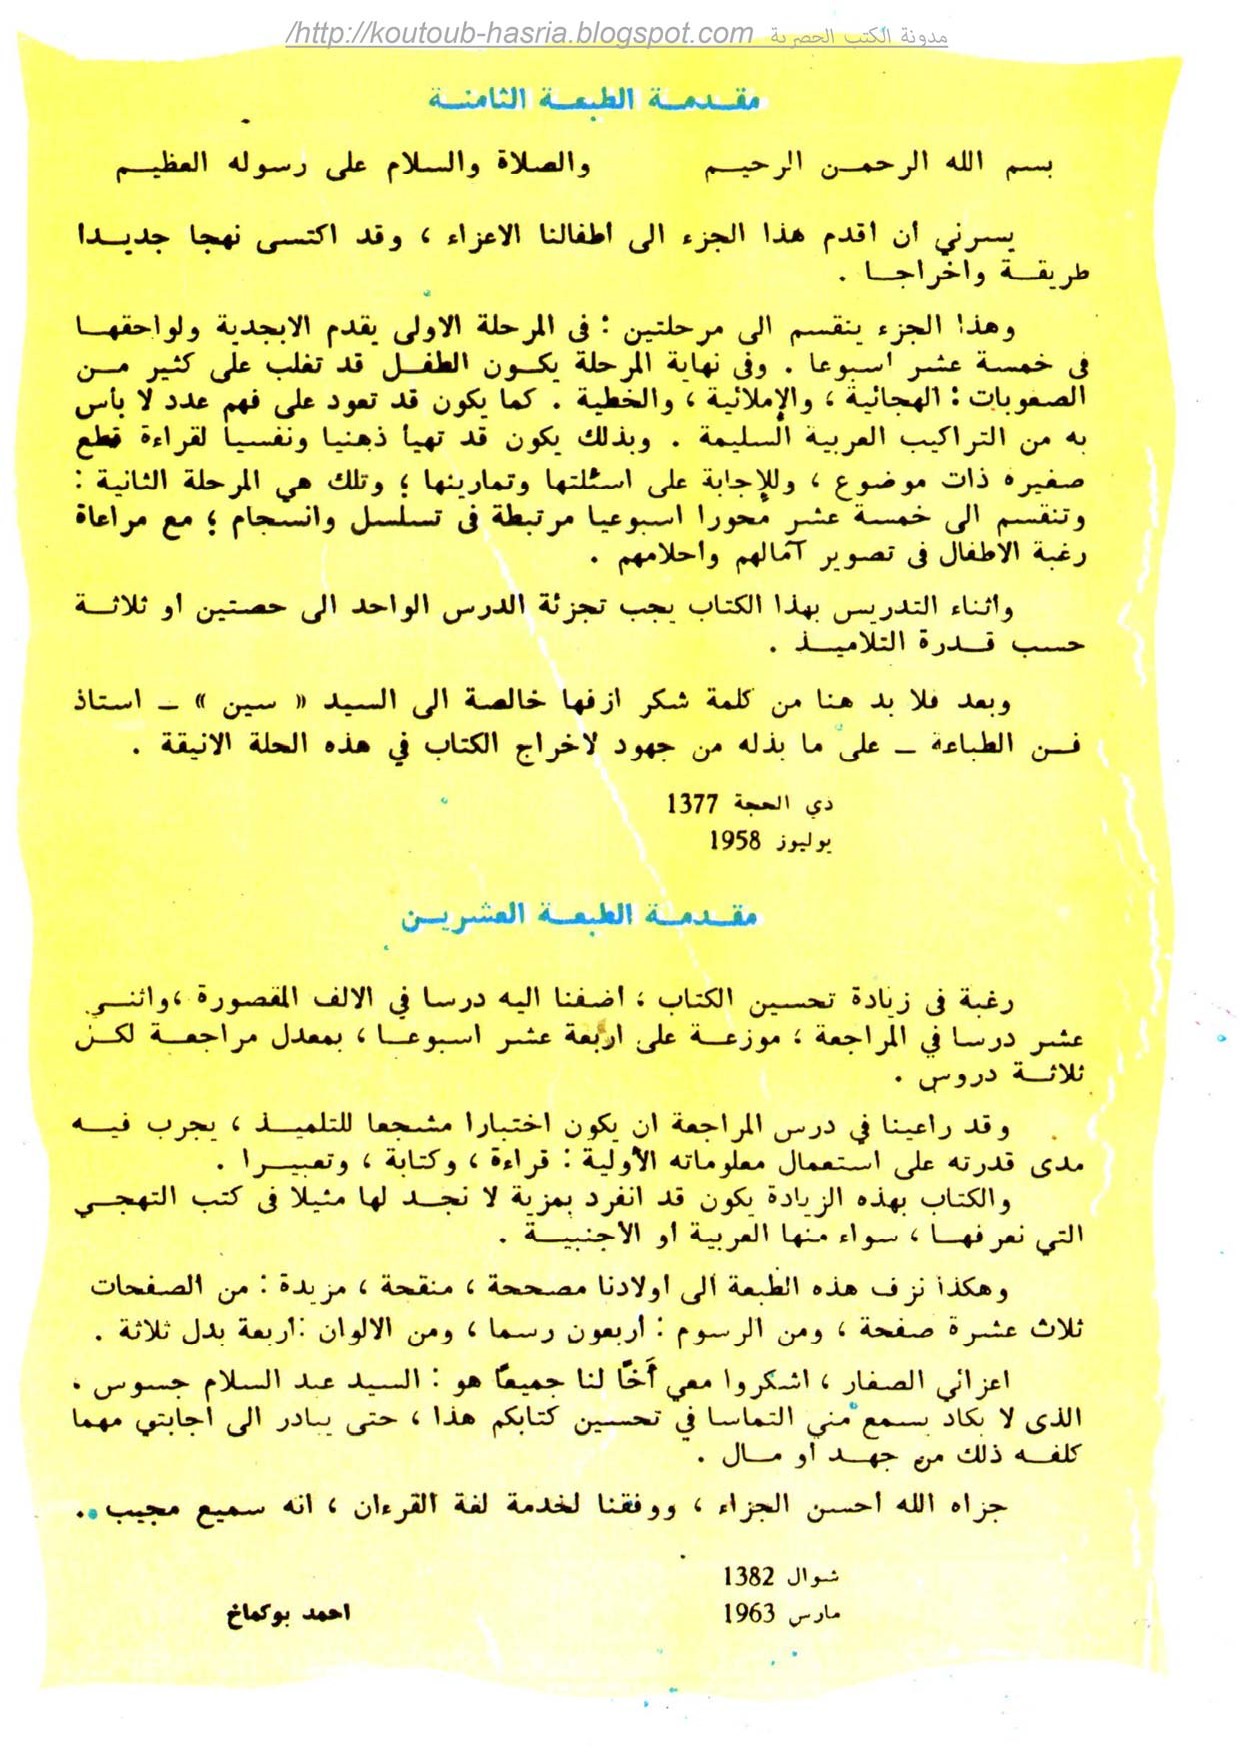 مدونة الكتب الحصرية http://koutoub-hasria.blogspot.com/
مقدمة الطبعة الثامنة
بسم الله الرحمن الرحيم والصلاة والسلام على رسوله العظيم
يسرني ان اقدم هذا الجزء الى اطفالنا الاعزاء ، وقد اكتسى نهجا جديدا
طريقة واخراجا .
وهذا الجزء ينقسم الى مرحلتين : فى المرحلة الاولى يقدم الابجدية ولواحقها
فى خمسة عشر اسبوعا . وفى نهاية المرحلة يكون الطفل قد تغلب على كثير من
الصعوبات : الهجائية ، والإملائية ، والخطية . كما يكون قد تعود على فهم عدد لا بأس
به من التراكيب العربية السليمة . وبذلك يكون قد تهيأ ذهنيا ونفسيا لقراءة قطع
صغيرة ذات موضوع ، وللإجابة على اسئلتها وتمارينها ؛ وتلك هي المرحلة الثانية :
وتنقسم الى خمسة عشر محورا اسبوعيا مرتبطة فى تسلسل وانسجام ؛ مع مراعاة
رغبة الاطفال فى تصوير آمالهم واحلامهم .
واثناء التدريس بهذا الكتاب يجب تجزئة الدرس الواحد الى حصتين او ثلاثة
حسب قدرة التلاميذ .
وبعد فلا بد هنا من كلمة شكر ازفها خالصة الى السيد « سين » ــ استاذ
فن الطباعة ــ على ما بذله من جهود لاخراج الكتاب في هذه الحلة الانيقة .
ذي الحجة 1377
يوليوز 1958
مقدمة الطبعة العشرين
رغبة فى زيادة تحسين الكتاب ، اضفنا اليه درسا في الالف المقصورة ،واثنى
عشر درسا في المراجعة ؛ موزعة على اربعة عشر اسبوعا ، بمعدل مراجعة لكل
ثلاثة دروس .
وقد راعينا في درس المراجعة ان يكون اختبارا مشجعا للتلميذ ، يجرب فيه
مدى قدرته على استعمال معلوماته الأولية : قراءة ، وكتابة ، وتعبيرا .
والكتاب بهذه الزيادة يكون قد انفرد بمزية لا نجد لها مثيلا فى كتب التهجي
التي نعرفها ، سواء منها العربية او الاجنبية .
وهكذا نزف هذه الطبعة الى اولادنا مصححة ، منقحة ، مزيدة : من الصفحات
ثلاث عشرة صفحة ، ومن الرسوم : اربعون رسما ، ومن الالوان :اربعة بدل ثلاثة .
اعزائي الصغار ، اشكروا معي أخًا لنا جميعًا هو : السيد عبد السلام جسوس .
الذى لا يكاد يسمع مني التماسا في تحسين كتابكم هذا ، حتى يبادر الى اجابتي مهما
كلفه ذلك من جهد او مال .
جزاه الله احسن الجزاء ، ووفقنا لخدمة لغة القرءان ، انه سميع مجيب ..
شوال 1382
مارس 1963 احمد بوكماخ